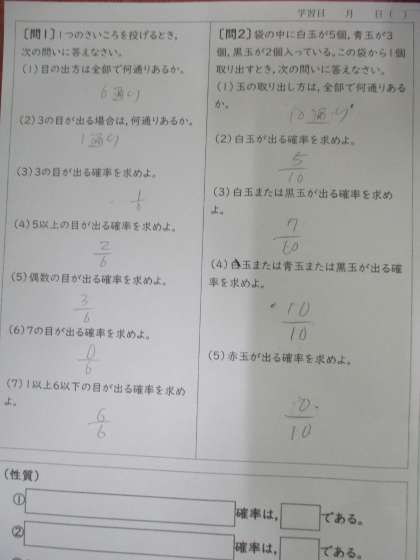 学習日　月　日（　）
［問1］1つのさいころを投げるとき，
次の問いに答えなさい。
(1) 目の出方は全部で何通りあるか。
6通り
(2) 3の目が出る場合は，何通りあるか。
1通り
(3) 3の目が出る確率を求めよ。
1/6
(4) 5以上の目が出る確率を求めよ。
2/6
(5) 偶数の目が出る確率を求めよ。
3/6
(6) 7の目が出る確率を求めよ。
0/6
(7) 1以上6以下の目が出る確率を求め
よ。
6/6
［問2］袋の中に白玉が5個，青玉が3
個，黒玉が2個入っている。この袋から1個
取り出すとき，次の問いに答えなさい。
(1) 玉の取り出し方は，全部で何通りある
か。
10通り
(2) 白玉が出る確率を求めよ。
5/10
(3) 白玉または黒玉が出る確率を求め
よ。
7/10
(4) 白玉または青玉または黒玉が出る確
率を求めよ。
10/10
(5) 赤玉が出る確率を求めよ。
0/10
（性質）
① 確率は， である。
② 確率は， である。